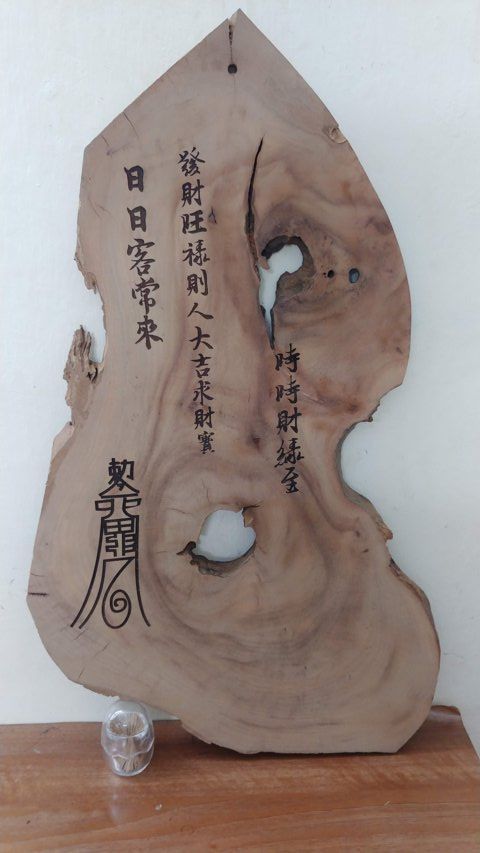 時時財緣至
發財旺祿則人大吉求財寳
日日客常來
勅